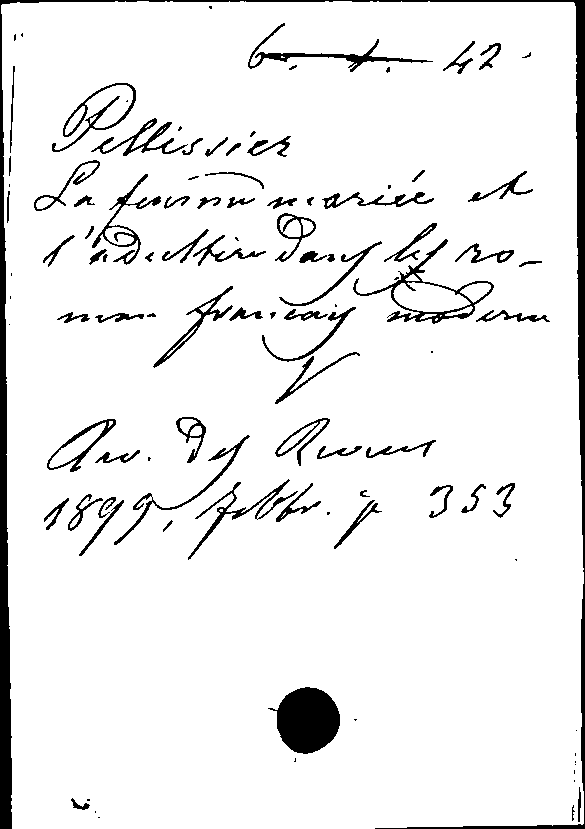 6. 1. 42
Pellissier
La femme mariée et
l'adultère dans les ro-
man français moderne
V
Rev. des Revues
1899, Febbr. p 353